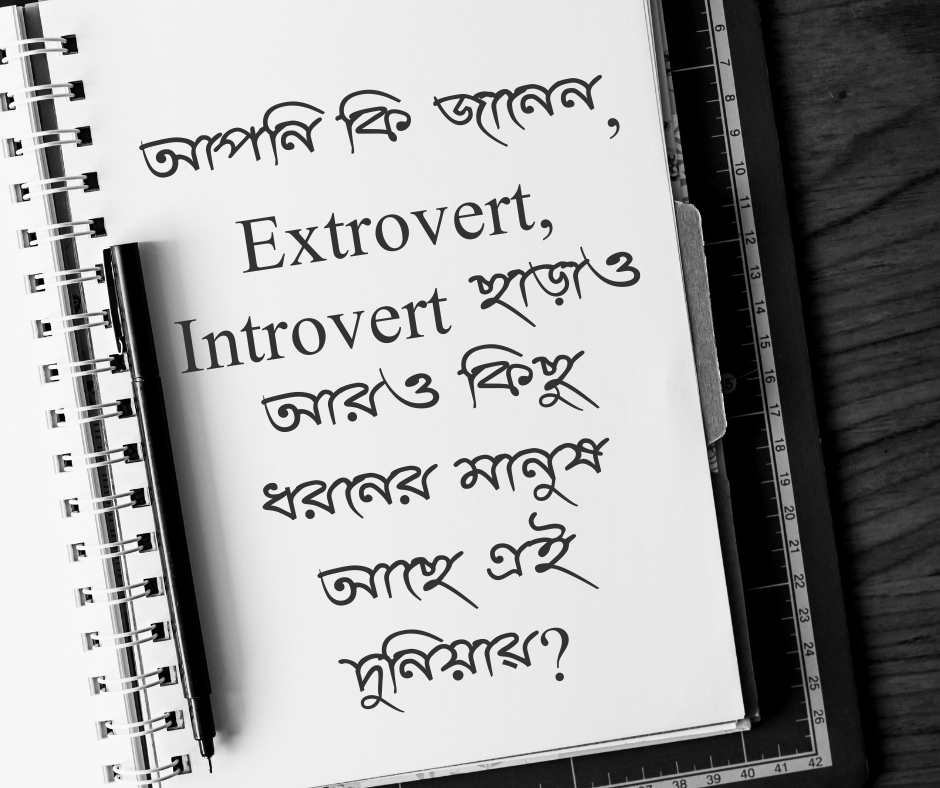 আপনি কি জানেন,
Extrovert,
Introvert ছাড়াও
আরও কিছু
ধরনের মানুষ
আছে এই
দুনিয়ার?
6
7
8
9
10
11
12
13
14
15
16
17
18
19
20
21
22
23
24
25
26
38 39 40 41 42